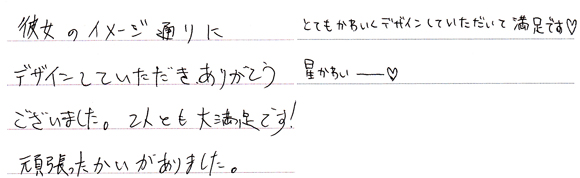 彼女のイメージ通りに
デザインしていただき、ありがとう
ございました。2人とも大満足です!
頑張ったかいがありました。
とてもかわいくデザインしていただいて満足です♡
星かわいーー♡